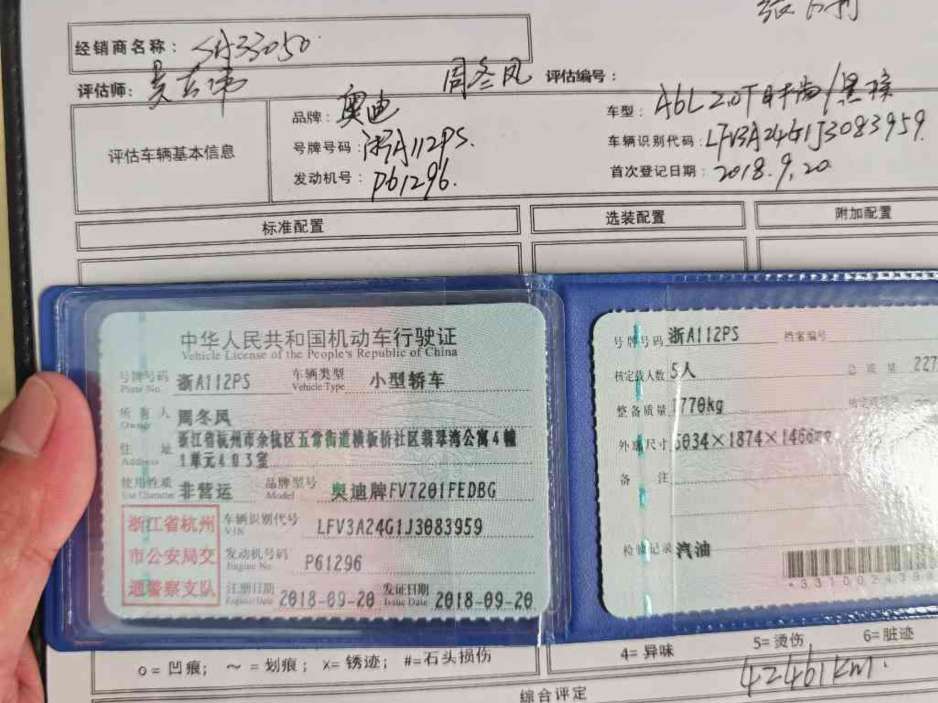 经销商名称：SH33050
评估师： 周冬凤 评估编号：
评估车辆基本信息
品牌：奥迪 车型：A6L 2.0T 时尚/黑棕
号牌号码：浙A112PS. 车辆识别代码：LFV3A24G1J3083959
发动机号：P61296. 首次登记日期：2018.9.20
标准配置 选装配置 附加配置
中华人民共和国机动车行驶证
Vehicle License of the People's Republic of China
号牌号码 浙A112PS 车辆类型 小型轿车
Plate No. Vehicle Type
所有人 周冬凤
Owner
住址 浙江省杭州市余杭区五常街道横板桥社区翡翠湾公寓4幢
Address 1单元403室
使用性质 非营运 品牌型号 奥迪牌FV7201FEDBG
Use Character Model
浙江省杭州
市公安局交
通警察支队
车辆识别代号 LFV3A24G1J3083959
VIN
发动机号码 P61296
Engine No.
注册日期 2018-09-20 发证日期 2018-09-20
Register Date Issue Date
号牌号码 浙A112PS 档案编号
核定载人数 5人 总质量 227
整备质量 1770kg
外廓尺寸 5034×1874×1466mm
备注
检验记录 汽油
o=凹痕； ～=划痕； x=锈迹； #=石头损伤
4=异味 5=烫伤 6=脏迹
42461km.
综合评定